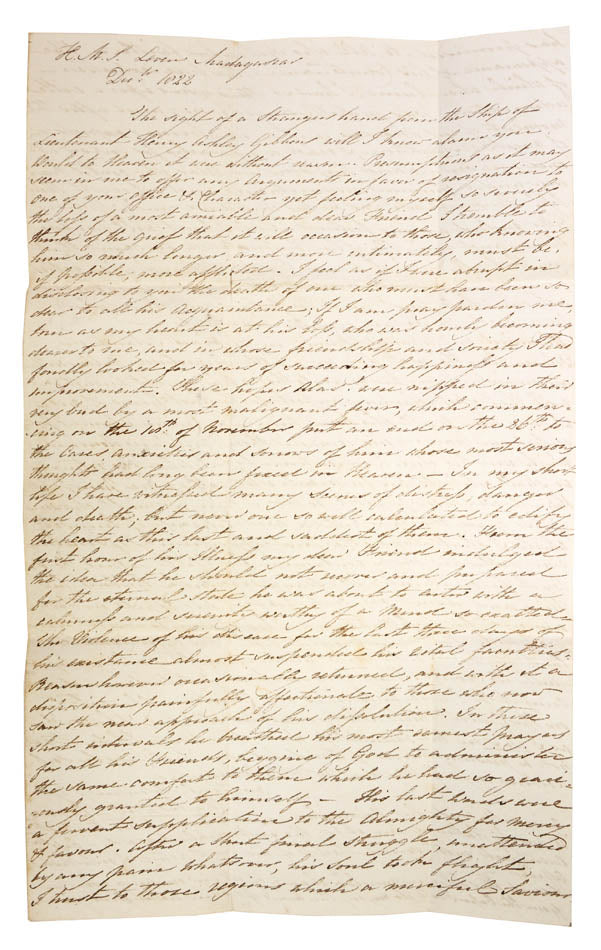 H. M. S. Leven Madagascar
Decr. 1822
The sight of a Strangers hand from the Ship of
Lieutenant Henry Ashley Gibbons will I know alarm you
Would to Heaven it was without reason. Presumptuous as it may
seem in me to offer any Arguments in favor of resignation to
one of your office & Character yet feeling myself so severely
the loss of a most amiable and dear Friend I tremble to
think of the grief that it will occasion to those, who knowing
him so much longer and more intimately, must be,
if possible, more afflicted. I feel as if I were abrupt in
disclosing to you the death of one who must have been so
dear to all his Acquaintance; If I am, pray pardon me,
torn as my heart is at his loss, who was hourly becoming
dearer to me, and in whose friendship and society I had
fondly looked for years of succeeding happiness and
improvement. These hopes Alas! are nipped in their
very bud by a most malignant fever, which commenc-
ing on the 10th. of November put an end on the 26th. to
the Cares anxieties and sorrows of him whose most serious
thoughts had long been fixed in Heaven — In my short
life I have witnessed many scenes of distress, danger
and death; but never one so well calculated to edify
the heart as this last and saddest of them. From the
first hour of his Illness my dear Friend indulged
the idea that he should not recover and prepared
for the eternal state he was about to enter with a
calmness and serenity worthy of a Mind so exalted.
The Violence of his disease for the last three days of
his existence almost suspended his vital faculties.
Reason however occasionally returned, and with it a
disposition painfully affectionate to those who now
saw the near approach of his dissolution. In these
short intervals he breathed his most earnest prayers
for all his Friends, begging of God to administer
the same comfort to them which he had so graci-
ously granted to himself — His last words were
a fervent supplication to the Almighty for mercy
& favour. After a short final struggle, unattended
by any pain whatsoever, his soul took flight,
I trust to those regions which a merciful Saviour